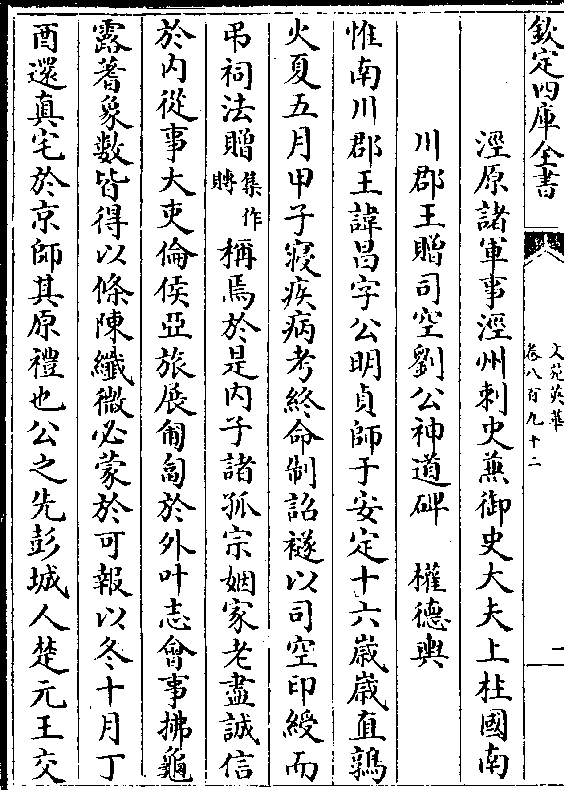 欽定四庫全書
文苑英華
卷八百九十二
一
涇原諸軍事涇州刺史兼御史大夫上柱國南
川郡王贈司空劉公神道碑　權德輿
惟南川郡王諱昌字公明貞師于安定十六歲歲直鶉
火夏五月甲子寢疾病考終命制詔襚以司空印綬而
弔祠法贈集作賻稱焉於是内子諸孤宗姻家老盡誠信
於内從事大吏倫侯亞旅展匍匐於外叶志會事拂龜
露蓍象數皆得以條陳纖微必蒙於可報以冬十月丁
酉還真宅於京師其原禮也公之先彭城人楚元王交